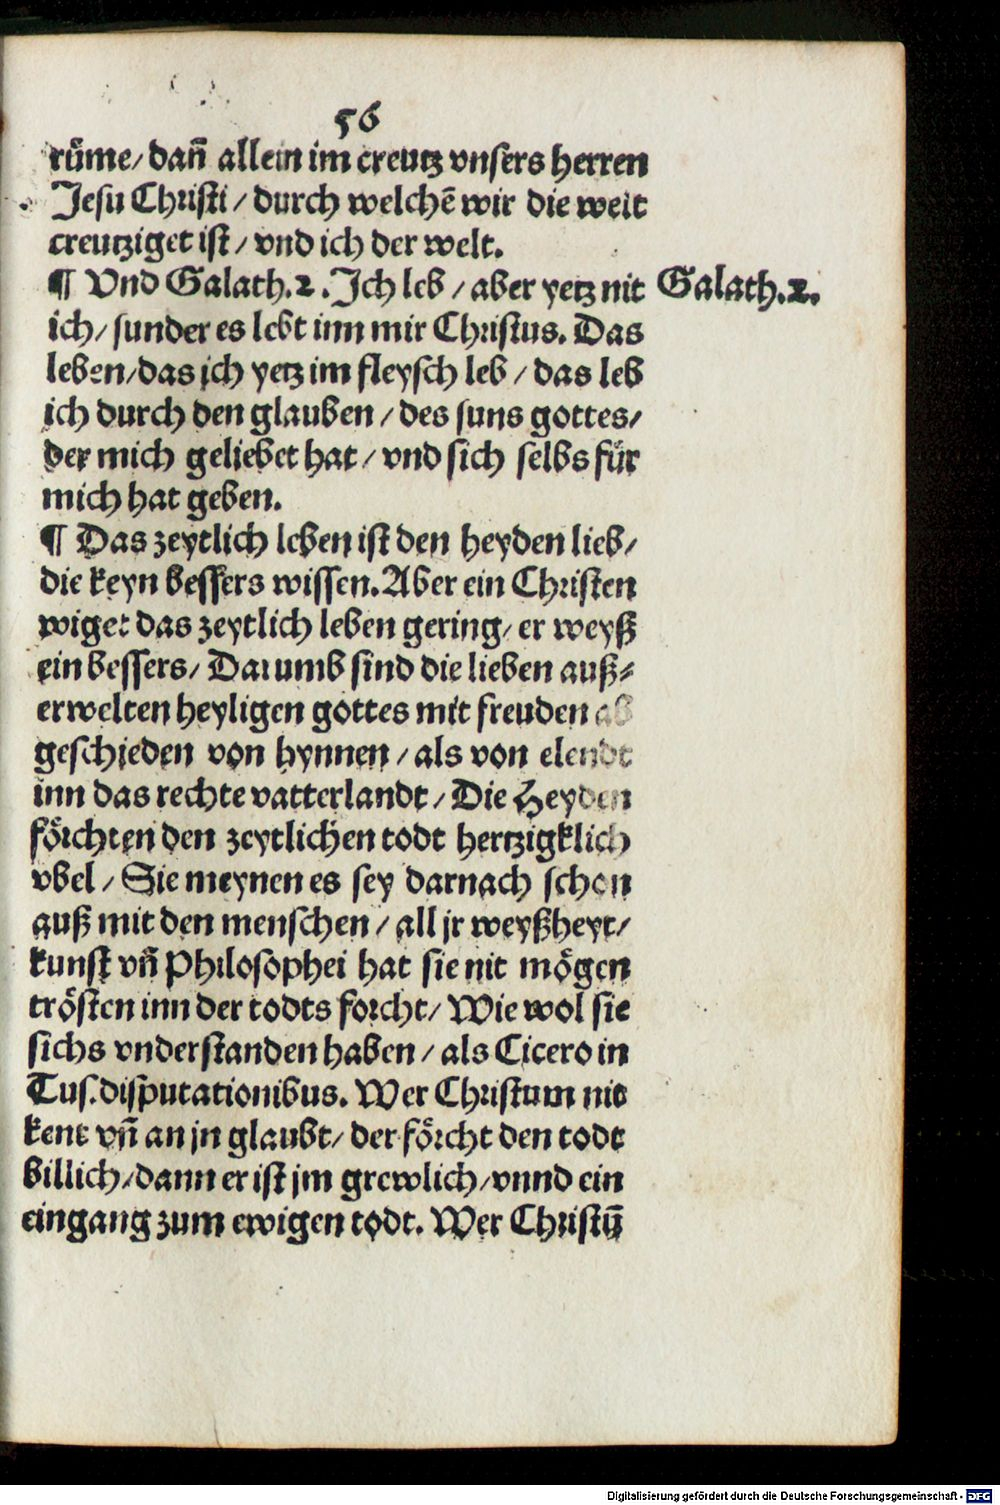 56
růme/ dañ allein im creutz vnsers herren
Jesu Christi / durch welchē wir die welt
creutziget ist / vnd ich der welt.
¶ Vnd Galath.2. Ich leb / aber yetz nit
Galath.2.
ich/ sunder es lebt inn mir Christus. Das
leben/das ich yetz im fleysch leb / das leb
ich durch den glauben / des suns gottes/
der mich geliebet hat / vnd sich selbs für
mich hat geben.
¶ Das zeytlich leben ist den heyden lieb/
die keyn bessers wissen. Aber ein Christen
wiget das zeytlich leben gering/ er weyß
ein bessers/ Darumb sind die lieben auß⸗
erwelten heyligen gottes mit freuden ab
geschieden von hynnen / als von elendt
inn das rechte vatterlandt / Die Heyden
förchten den zeytlichen todt hertzigklich
vbel / Sie meynen es sey darnach schon
auß mit den menschen / all jr weyßheyt/
kunst vñ Philosophei hat sie nit mögen
trösten inn der todts forcht/ Wie wol sie
sichs vnderstanden haben / als Cicero in
Tus.disputationibus. Wer Christum nit
kent vñ an jn glaubt/ der förcht den todt
billich/dann er ist jm grewlich/vnnd ein
eingang zum ewigen todt. Wer Christū
Digitalisierung gefördert durch die Deutsche Forschungsgemeinschaft - DFG